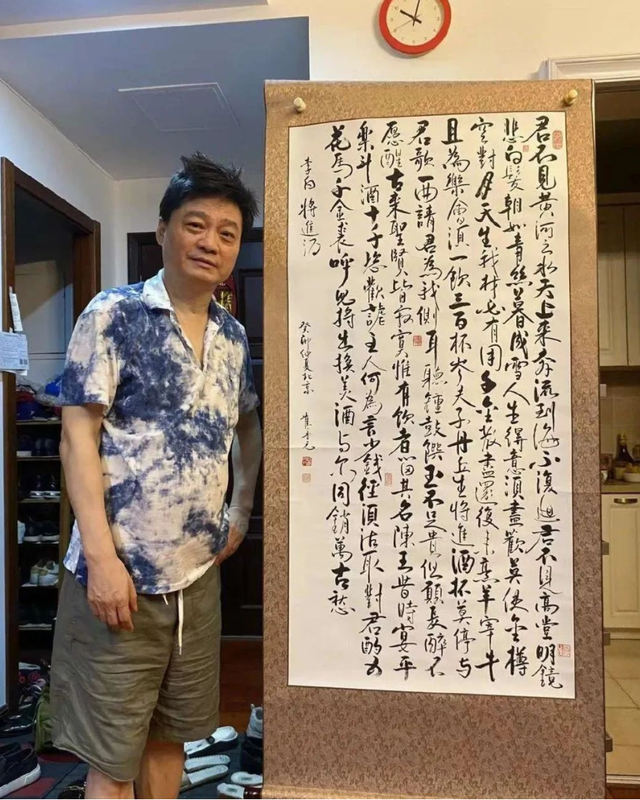 君不見黃河之水天上来奔流到海不復迴君不見高堂明鏡
悲白髮朝如青絲暮成雪人生得意須盡歡莫使金樽
空對月天生我材必有用千金散盡還復来烹羊宰牛
且為樂會須一飲三百杯岑夫子丹丘生將進酒杯莫停与
君歌一曲請君為我側耳聽鐘鼓饌玉不足貴但願長醉不
愿醒古来聖賢皆寂寞惟有飲者留其名陳王昔時宴平
樂斗酒十千恣歡謔主人何為言少錢徑須沽取對君酌五
花馬千金裘呼兒將出換美酒与尔同銷萬古愁
李白 將進酒
癸卯仲夏北京 崔永元